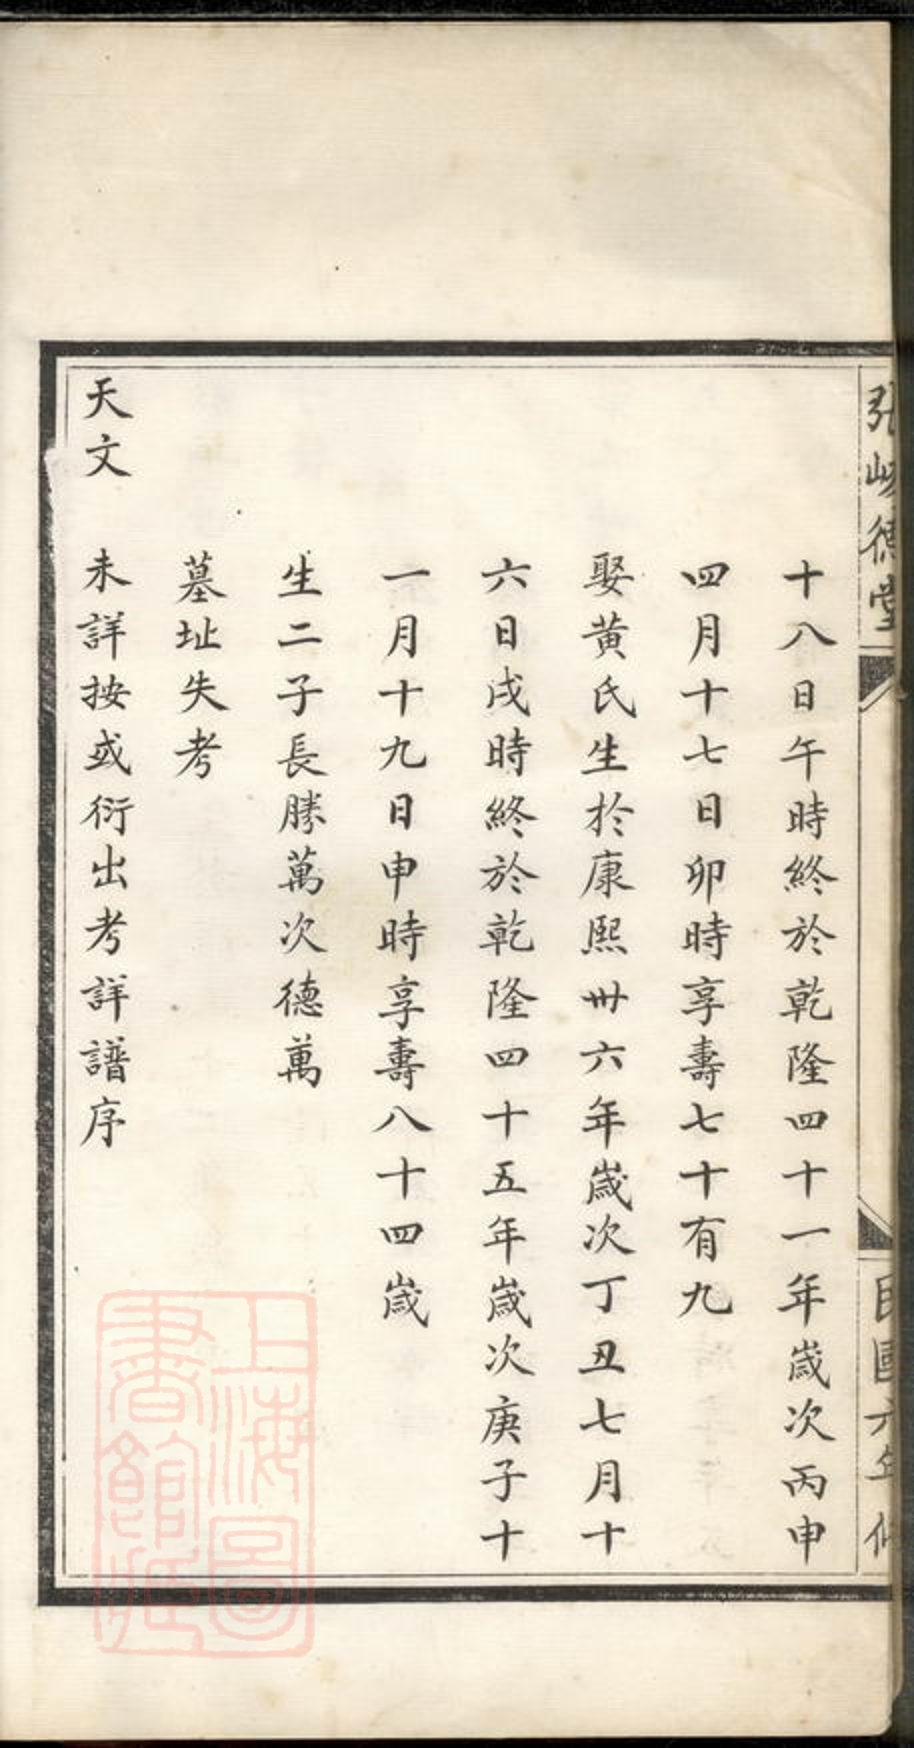 德堂
民國六年修
十八日午時終於乾隆四十一年歲次丙申
四月十七日卯時享壽七十有九
娶黃氏生於康熙卅六年歲次丁丑七月十
六日戌時終於乾隆四十五年歲次庚子十
一月十九日申時享壽八十四歲
生二子長勝萬次德萬
墓址失考
天文　未詳按或衍出考詳譜序
上海圖書館藏